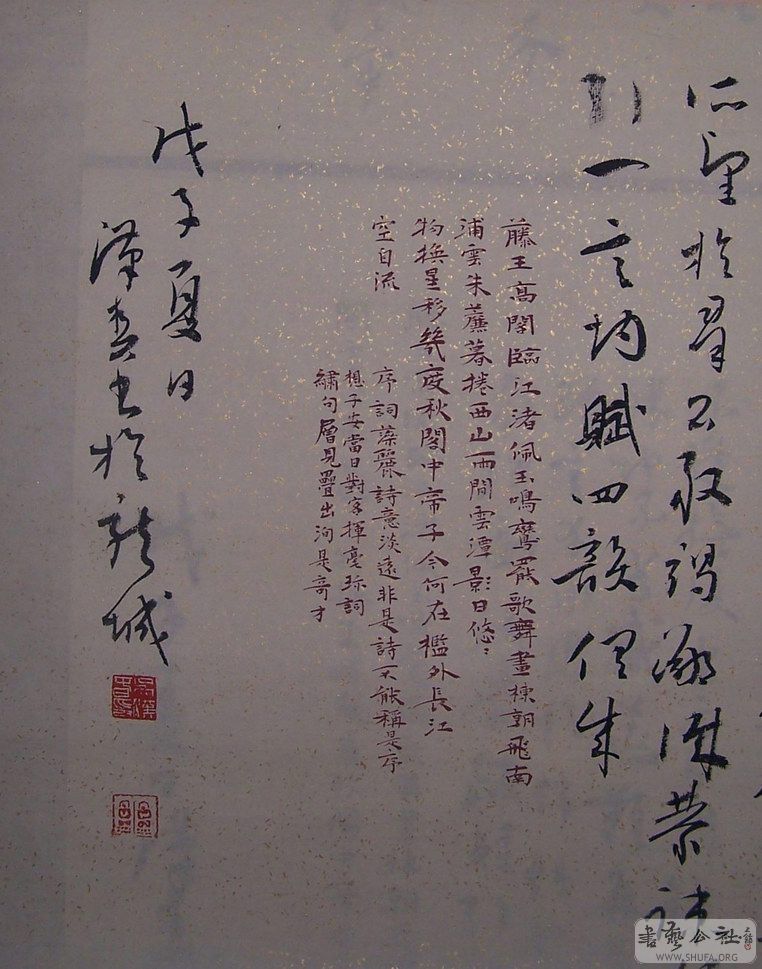 所望於羣公敢竭鄙誠恭疏
引一言均賦四韻俱成
藤王高閣臨江渚佩玉鳴鸞罷歌舞畫棟朝飛南
浦雲朱簾暮捲西山雨閒雲潭影日悠〻
物換星移幾度秋閣中帝子今何在檻外長江
空自流
序詞藻麗詩意淡遠非是詩不能稱是序
想子安當日對客揮毫珎詞
繡句層見疊出洵是奇才
戊子夏日
漢春書於龍城
書藝公社
WWW.SHUFA.ORG